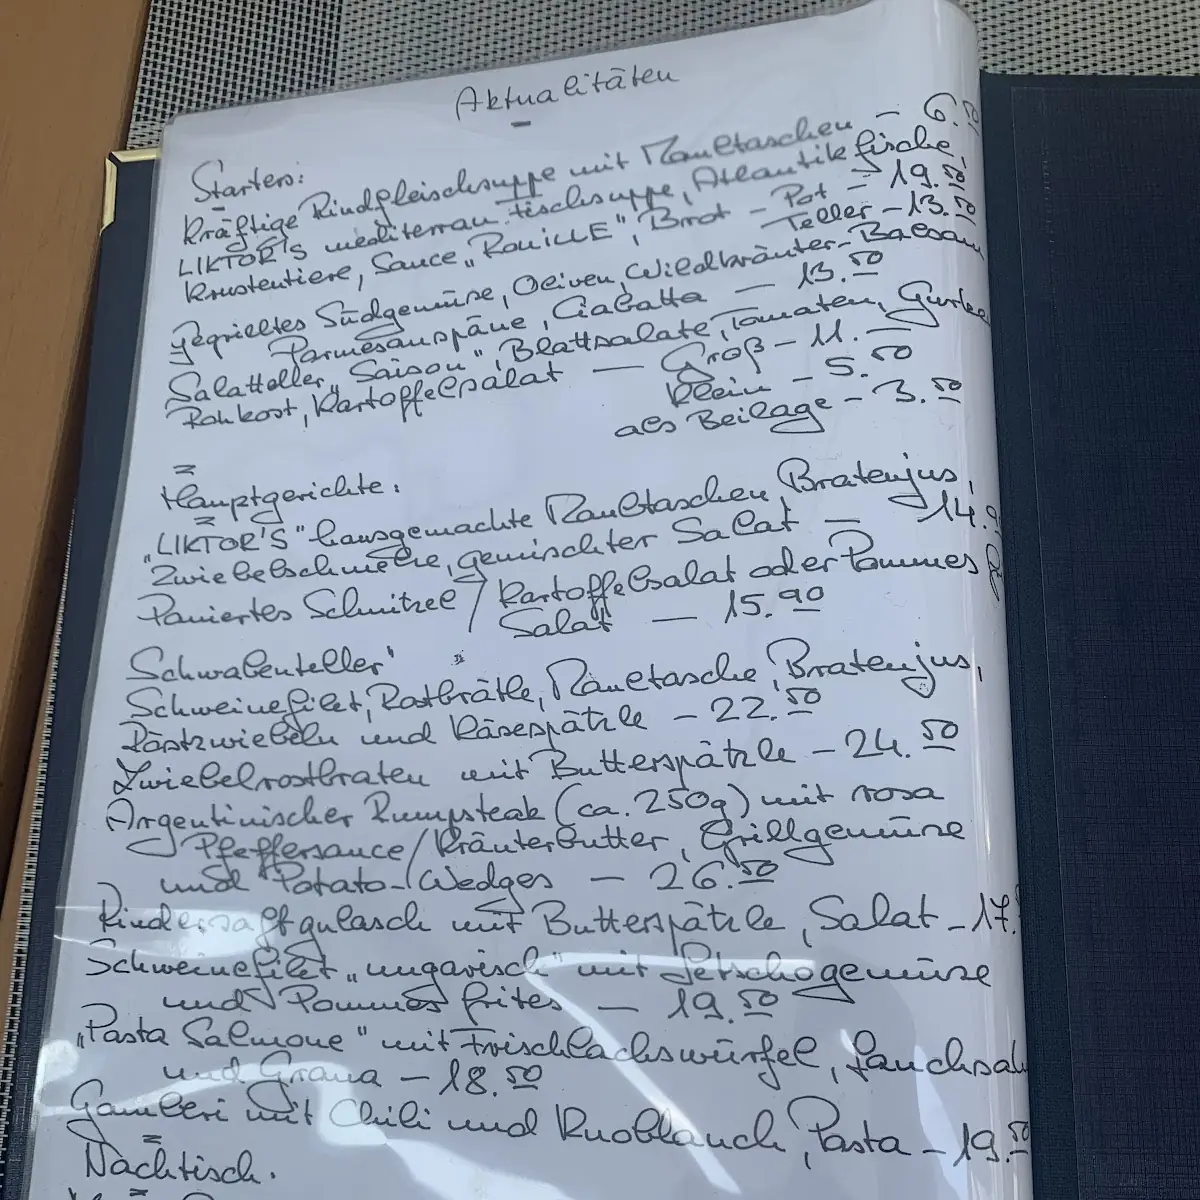 Aktualitäten
Starters:
Kräftige Rindfleischsuppe mit Maultaschen - 6.50
LIKTOR'S mediterran. Fischsuppe, Atlantikfische,
Krustentiere, Sauce „ROUILLE", Brot - Pot = 19.50
Teller - 13.50
Gegrilltes Südgemüse, Oliven, Wildkräuter-Balsam
Parmesanspäne, Ciabatta — 13.50
Salatteller „Saison", Blattsalate, Tomaten, Gurken
Rohkost, Kartoffelsalat — Groß - 11.-
klein - 5.50
als Beilage - 3.50
Hauptgerichte.
„LIKTOR'S" hausgemachte Maultaschen, Bratenjus,
Zwiebelschmelze, gemischter Salat — 14.9
Paniertes Schnitzel / Kartoffelsalat oder Pommes
Salat — 15.90
Schwabenteller'
Schweinefilet, Rostbrätle, Maultasche, Bratenjus,
Röstzwiebeln und Käsespätzle - 22.50
Zwiebelrostbraten mit Butterspätzle - 24.50
Argentinischer Rumpsteak (ca. 250g) mit rosa
Pfeffersauce/Kräuterbutter, Grillgemüse
und Potato-Wedges — 26.50
Rindersaftgulasch mit Butterspätzle, Salat - 17.
Schweinefilet „ungarisch" mit Letschogemüse
und Pommes frites — 19.50
„Pasta Salmone" mit Frischlachswürfel, Lauchsah
und Grana - 18.50
Gamberi mit Chili und Knoblauch, Pasta - 19.50
Nachtisch.